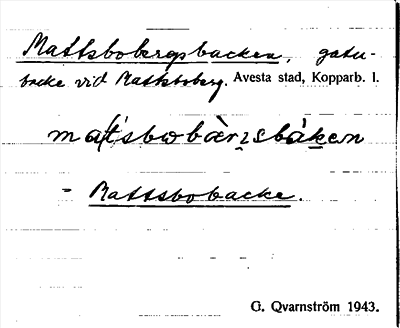 Mattsbobergsbacken, gatu-
backe vid Mattsboberg. Avesta stad, Kopparb. l.
matsbobærsbaken
- Mattsbobacke.
G. Qvarnström 1943.